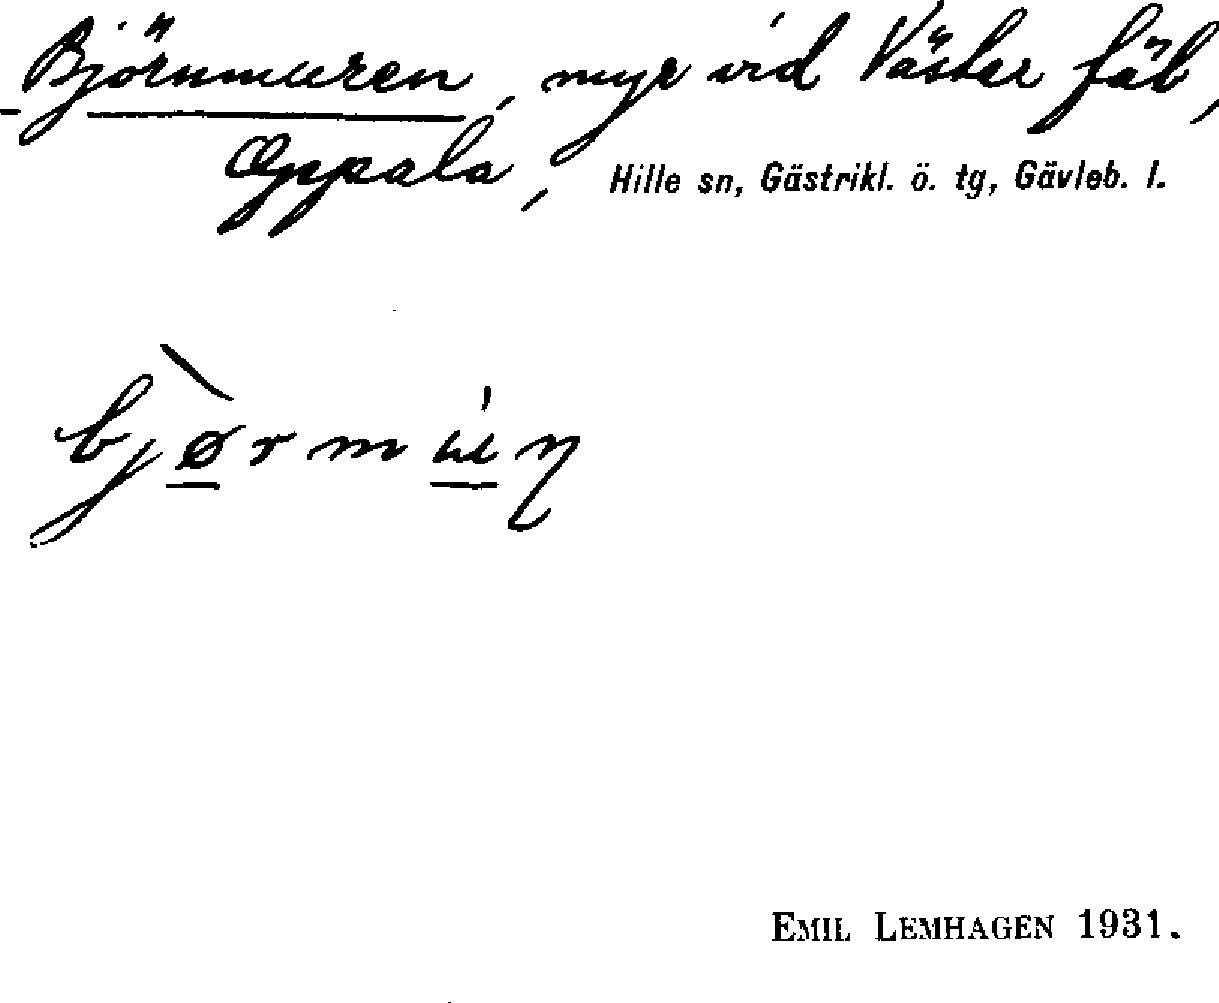 Björnmuren, myr vid Väster fäb,
Oppala, Hille sn, Gästrikl. ö. tg, Gävleb. l.
bjø̱̀rmu̱̍ŋ
EMIL LEMHAGEN 1931.